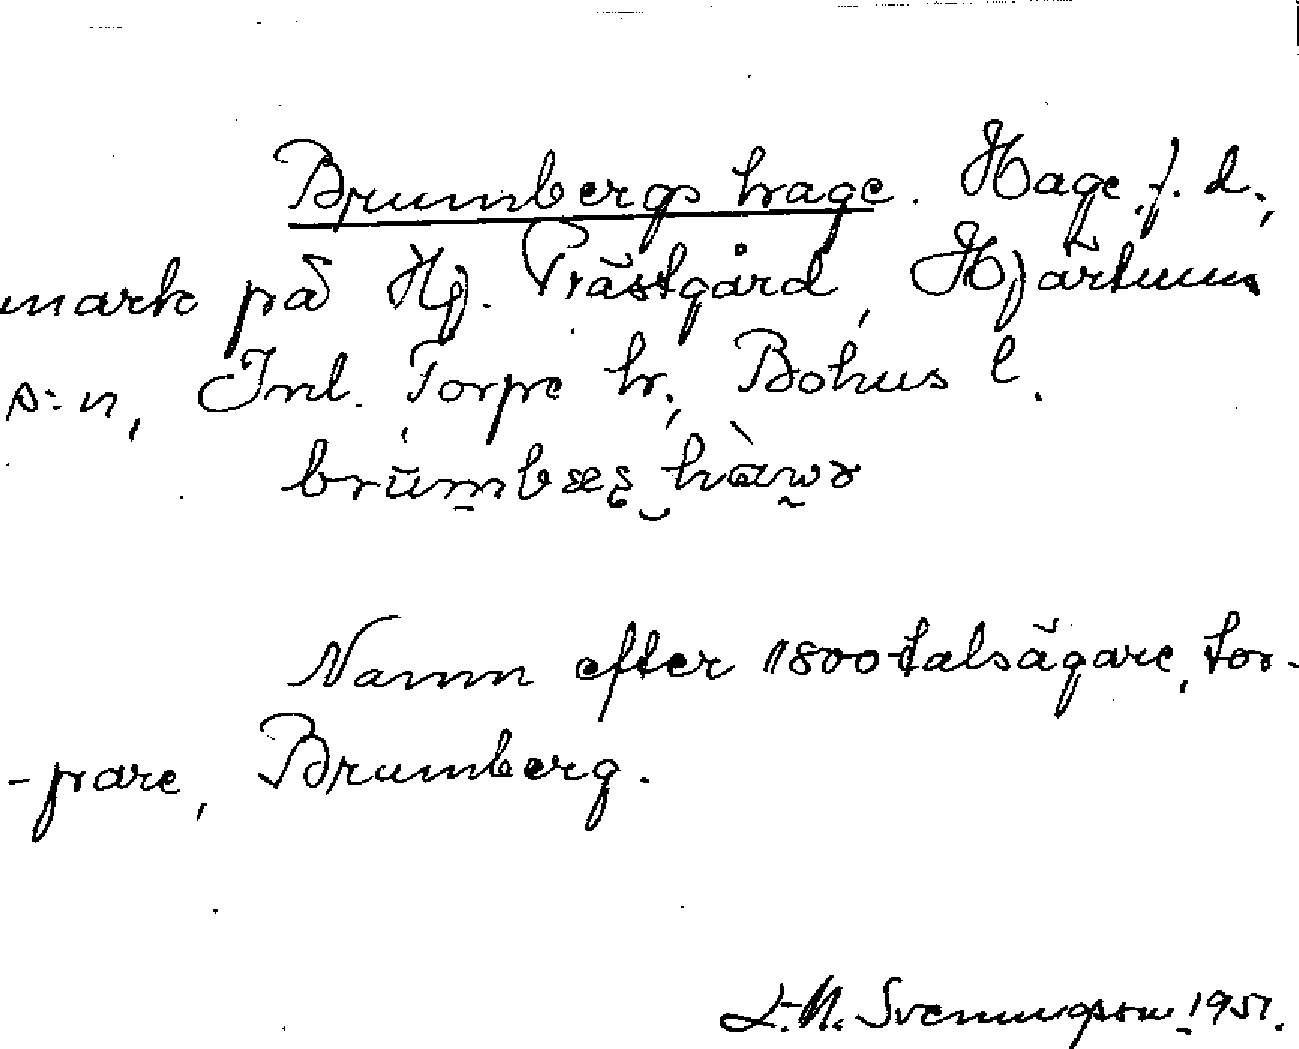 Brumbergs hage. Hage f. d.,
mark på Hj. Prästgård, Hjärtums
s:n, Inl. Torpe hr., Bohus l.
Namn efter 1800-talsägare, tor-
-pare, Brumberg.
L.N. Svenungsson 1951.